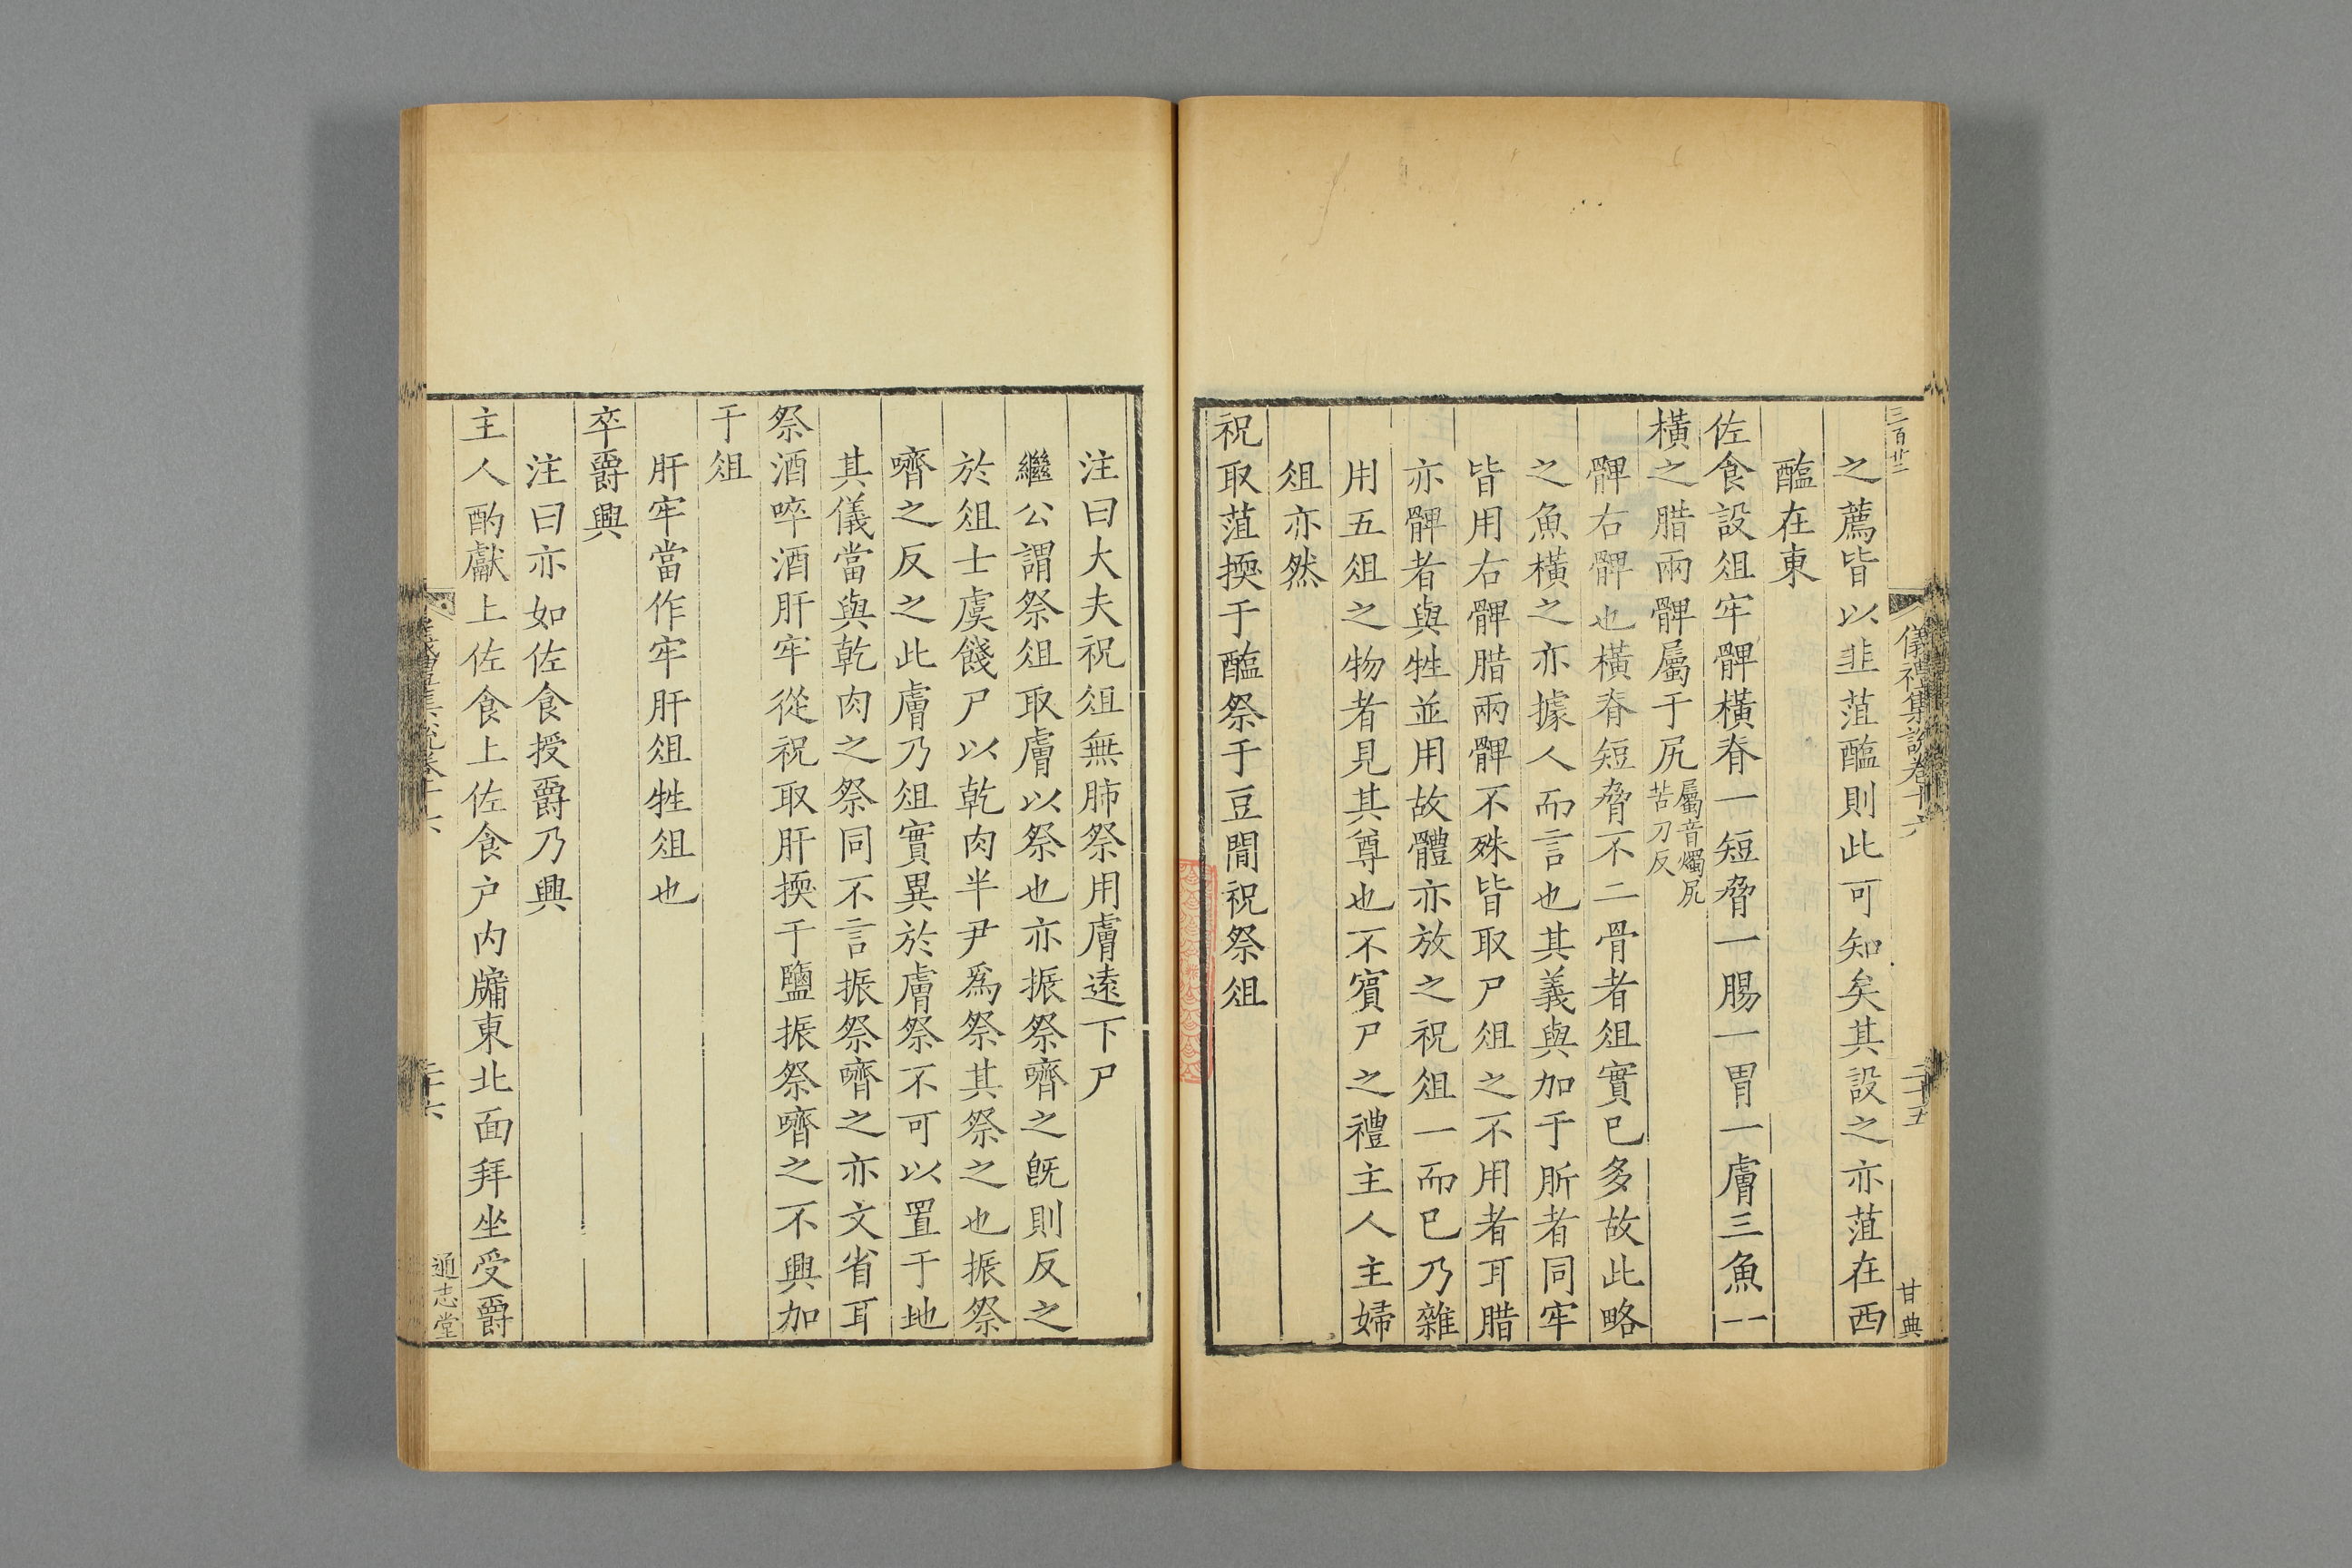 三百廿二
儀禮集說卷十六
二十五
甘典
之薦皆以韭菹醢則此可知矣其設之亦菹在西
醢在東
佐食設俎牢髀橫脊一短脅一腸一胃一膚三魚一
橫之腊兩髀屬于尻屬音燭尻苦刀反
髀右髀也橫脊短脅不二骨者俎實已多故此略
之魚橫之亦據人而言也其義與加于肵者同牢
皆用右髀腊兩髀不殊皆取尸俎之不用者耳腊
亦髀者與牲並用故體亦放之祝俎一而已乃雜
用五俎之物者見其尊也不賓尸之禮主人主婦
俎亦然
祝取菹擩于醢祭于豆閒祝祭俎
注曰大夫祝俎無肺祭用膚遠下尸
繼公謂祭俎取膚以祭也亦振祭嚌之旣則反之
於俎士虞餞尸以乾肉半尹爲祭其祭之也振祭
嚌之反之此膚乃俎實異於膚祭不可以置于地
其儀當與乾肉之祭同不言振祭嚌之亦文省耳
祭酒啐酒肝牢從祝取肝擩于鹽振祭嚌之不興加
于俎
肝牢當作牢肝俎牲俎也
卒爵興
注曰亦如佐食授爵乃興
主人酌獻上佐食上佐食户內牖東北面拜坐受爵
儀禮集說卷十六
二十六
通志堂